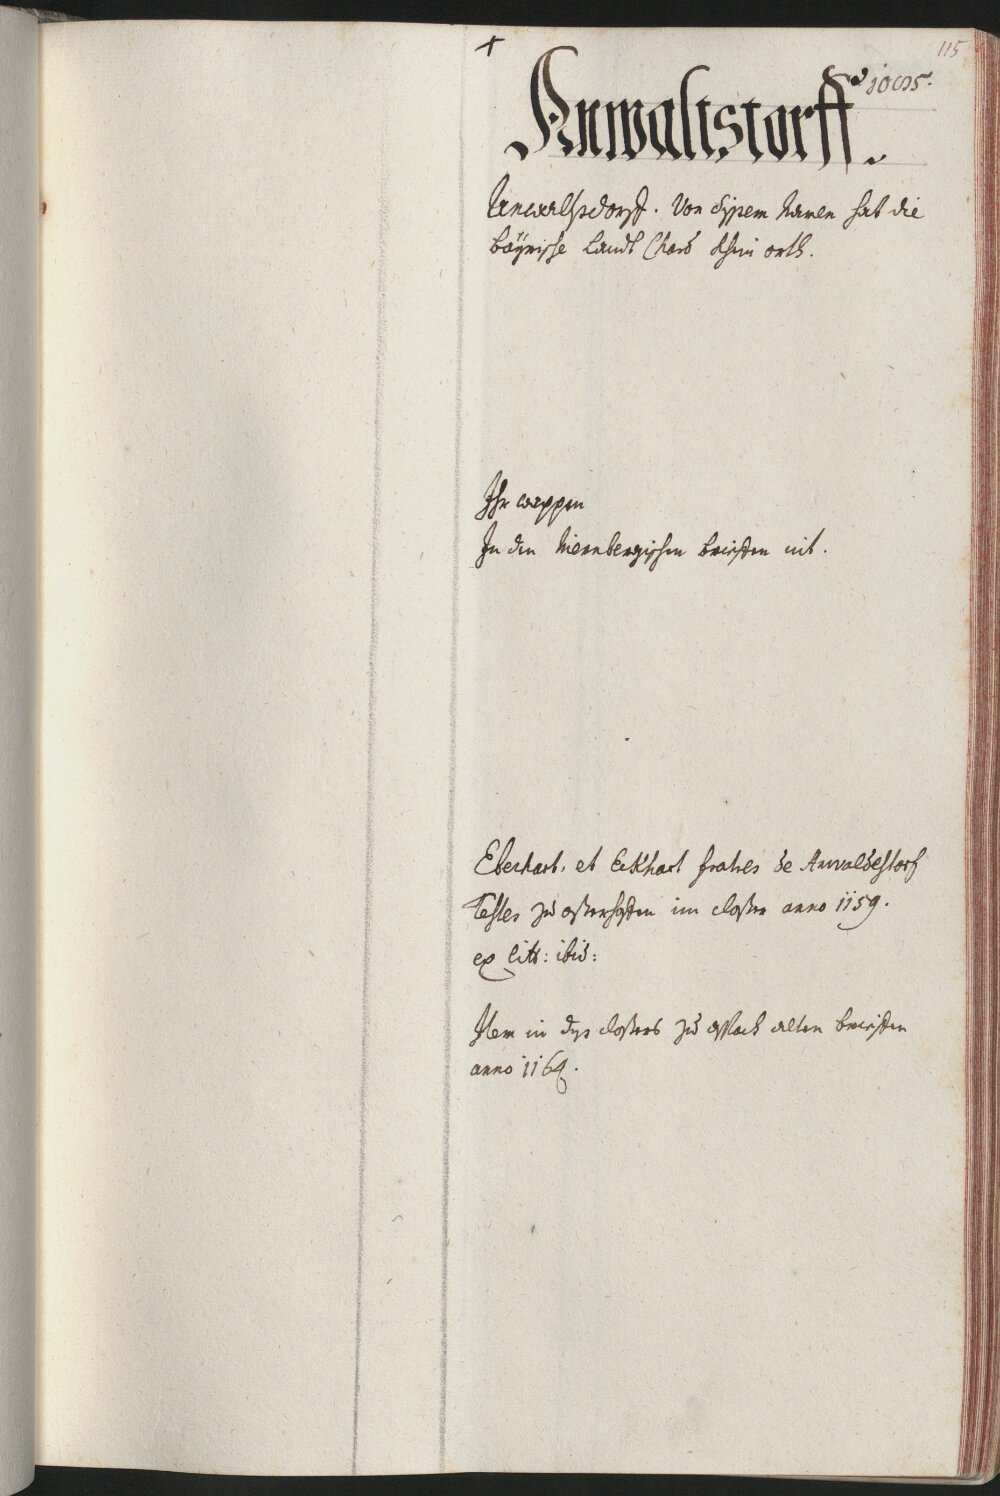 +
115
Anwaltstorff.
Anwalsdorff. Von disem Namen hat die
bayrische Landt Chard khein orth.
Ihr wappen
In den Niernbergischen brieffen nit.
Eberhart. et Eckhart fratres de Anwaldestorf
Testes zů osterhoffen im closter anno 1159.
ex litt: ibid:
Item in des closters zů alten brieffen
anno 1164.